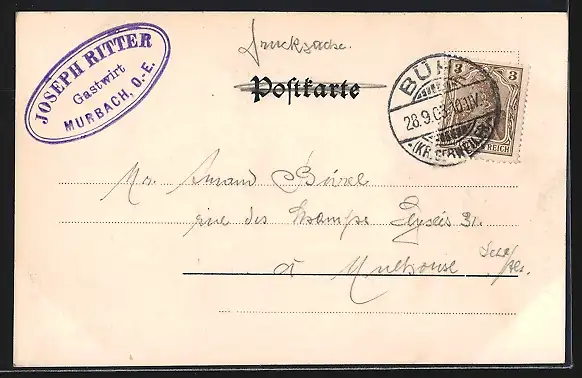 JOSEPH RITTER
Gastwirt
MURBACH, O.-E.
Drucksache.
Postkarte
BÜHL
28.9.03
(KR. GEBWEILER)
3 3
REICH
Mr. Armand
rue des Champs Elysés 31.
à Mulhouse